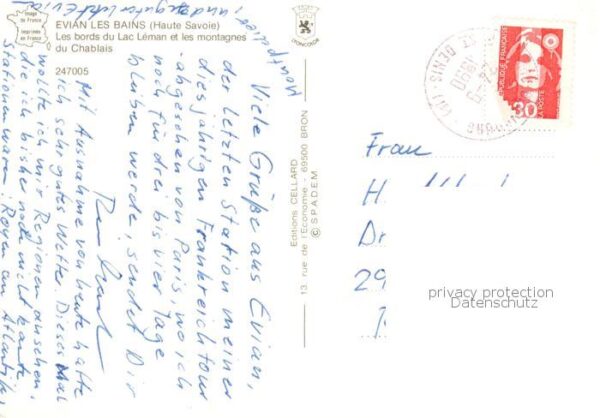 Image
de France
Imprimée
en France
EVIAN LES BAINS (Haute Savoie)
Les bords du Lac Léman et les montagnes
du Chablais
247005
LYONCOLOR
Editions CELLARD
13, rue de l'Economie - 69500 BRON
© SPADEM
REPUBLIQUE FRANÇAISE
LA POSTE
30
Viele Grüße aus Evian,
der letzten Station meiner
diesjährigen Frankreichtour
- abgesehen von Paris, wo ich
noch für drei bis vier Tage
bleiben werde, sendet Dir
Mit Ausnahme von heute hatte
ich sehr gutes Wetter. Dieses Mal
wollte ich mir Regionen ansehen,
die ich bisher noch nicht kannte.
Stationen waren: Royan am Atlantik,
Montpellier
und
Evian
Frau
H
Dr
29
privacy protection
Datenschutz